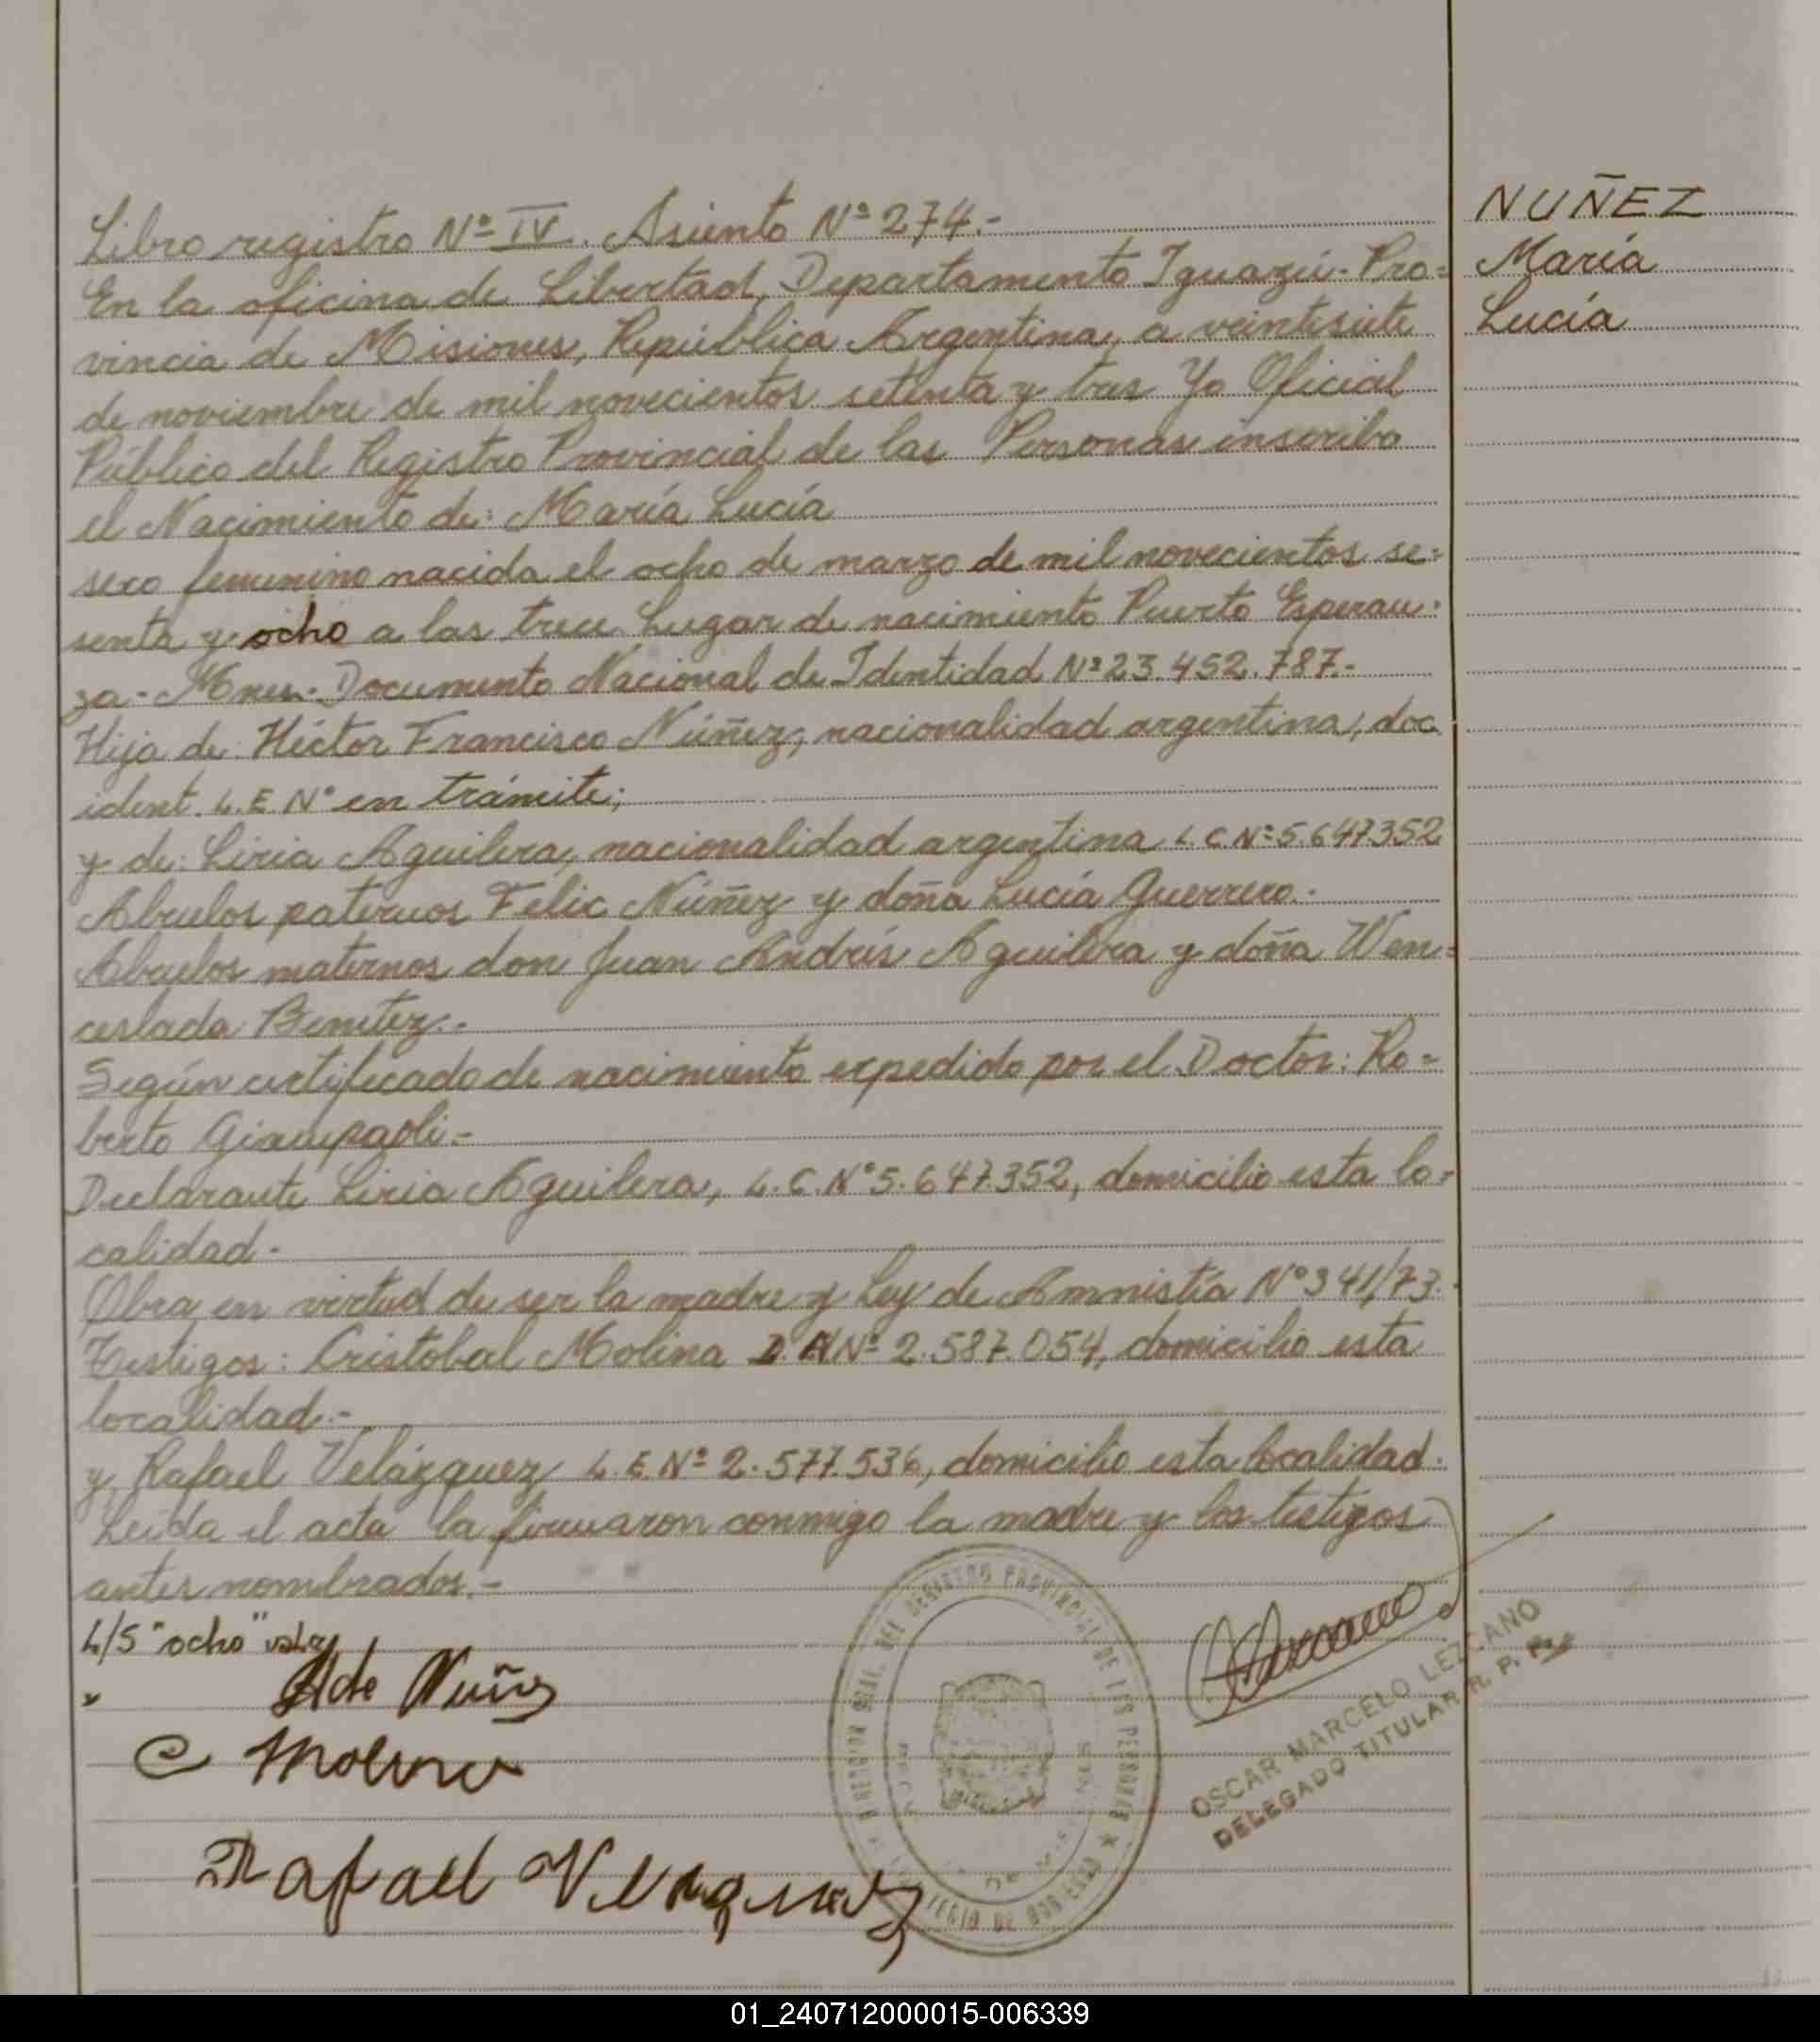 Libro registro Nº IV. Asiento Nº 274.-
En la oficina de Libertad, Departamento Iguazú- Pro=
vincia de Misiones, República Argentina, a veintisiete
de noviembre de mil novecientos setenta y tres Yo Oficial
Público del Registro Provincial de las Personas inscribo
el Nacimiento de: María Lucía
sexo femenino nacida el ocho de marzo de mil novecientos se=
senta y ocho a las trece Lugar de nacimiento Puerto Esperan=
za.- Mnes.- Documento Nacional de Identidad Nº 23.452.787.-
Hija de: Héctor Francisco Núñez, nacionalidad argentina, doc
ident. L.E Nº en trámite;
y de: Liria Aguilera, nacionalidad argentina L.C.Nº 5.647.352
Abuelos paternos Felix Núñez y doña Lucía Guerrero.-
Abuelos maternos don Juan Andrés Aguilera y doña Wen=
ceslada Benitez.-
Según certificado de nacimiento expedido por el Doctor: Ro=
berto Giampaoli.-
Declarante Liria Aguilera, L.C.Nº 5.647.352, domicilio esta lo=
calidad.-
Obra en virtud de ser la madre y Ley de Amnistía Nº 341/73.-
Testigos: Cristobal Molina Nº 2.587.054, domicilio esta
localidad.-
y, Rafael Velázquez L.E.Nº 2.577.536, domicilio esta localidad.
Leída el acta la firmaron conmigo la madre y los testigos
antes nombrados.-
L/S "ocho" vale
A de Nuñez
C Molina
Rafael Velazquez
OSCAR MARCELO LEZCANO
DELEGADO TITULAR R. P. P.
DEL REGISTRO PROVINCIAL DE LAS PERSONAS
NUÑEZ
María
Lucía
01_240712000015-006339